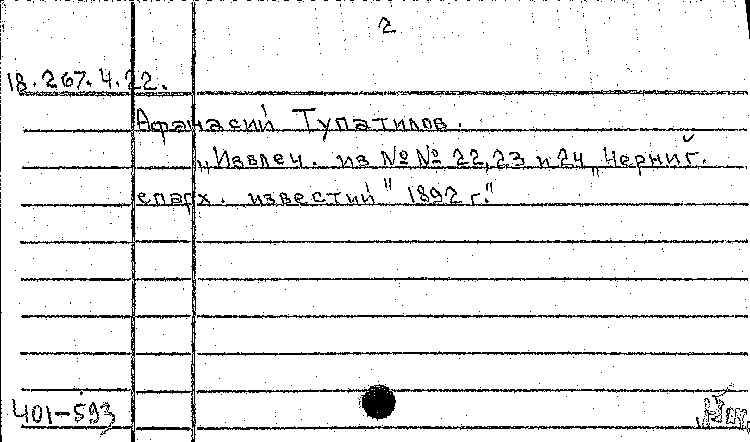 2
18.267.4.22.
Афанасий Тупатилов.
„Извлеч. из №№ 22,23 и 24 „Черниг.
епарх. известий" 1892 г."
401-593